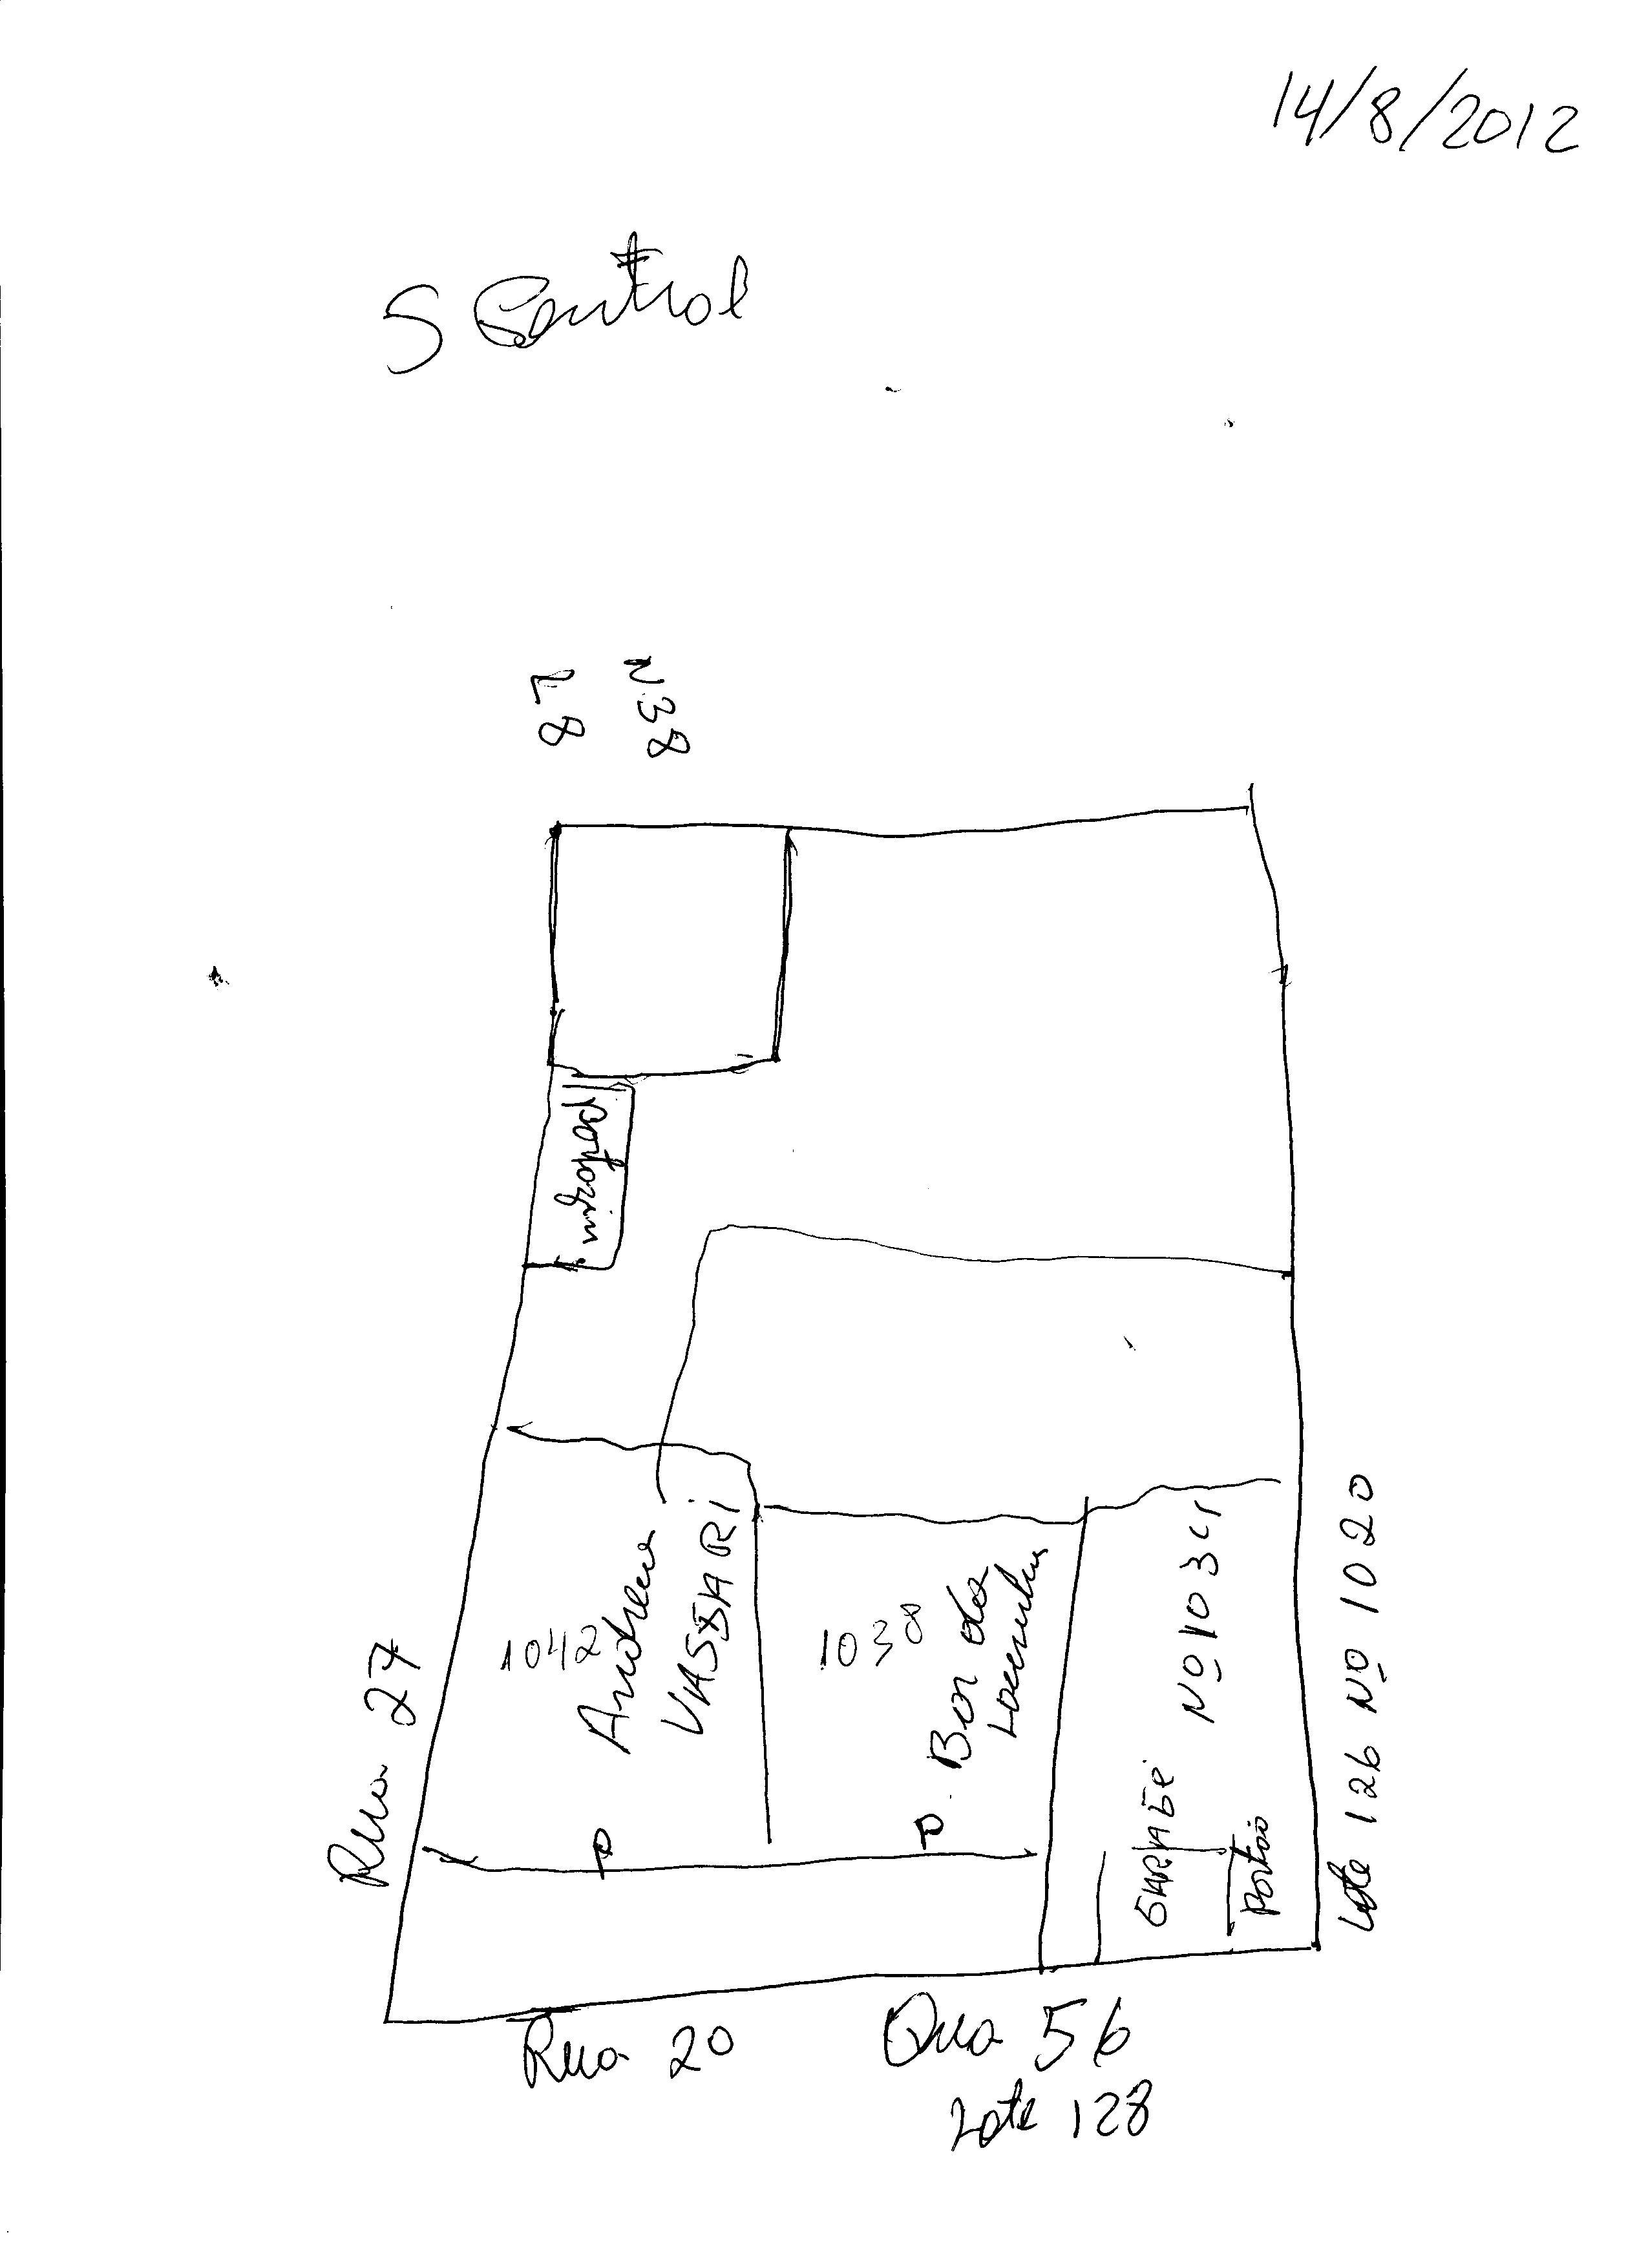 14/8/2012
S Central
L 8
N 38
Rua 27
1042
Andrea
VASSARI
1038
Bar da
Nº 1034
GARAGE
Portão
Lote 126 Nº 1020
Rua 20
Qua 56
Lote 128